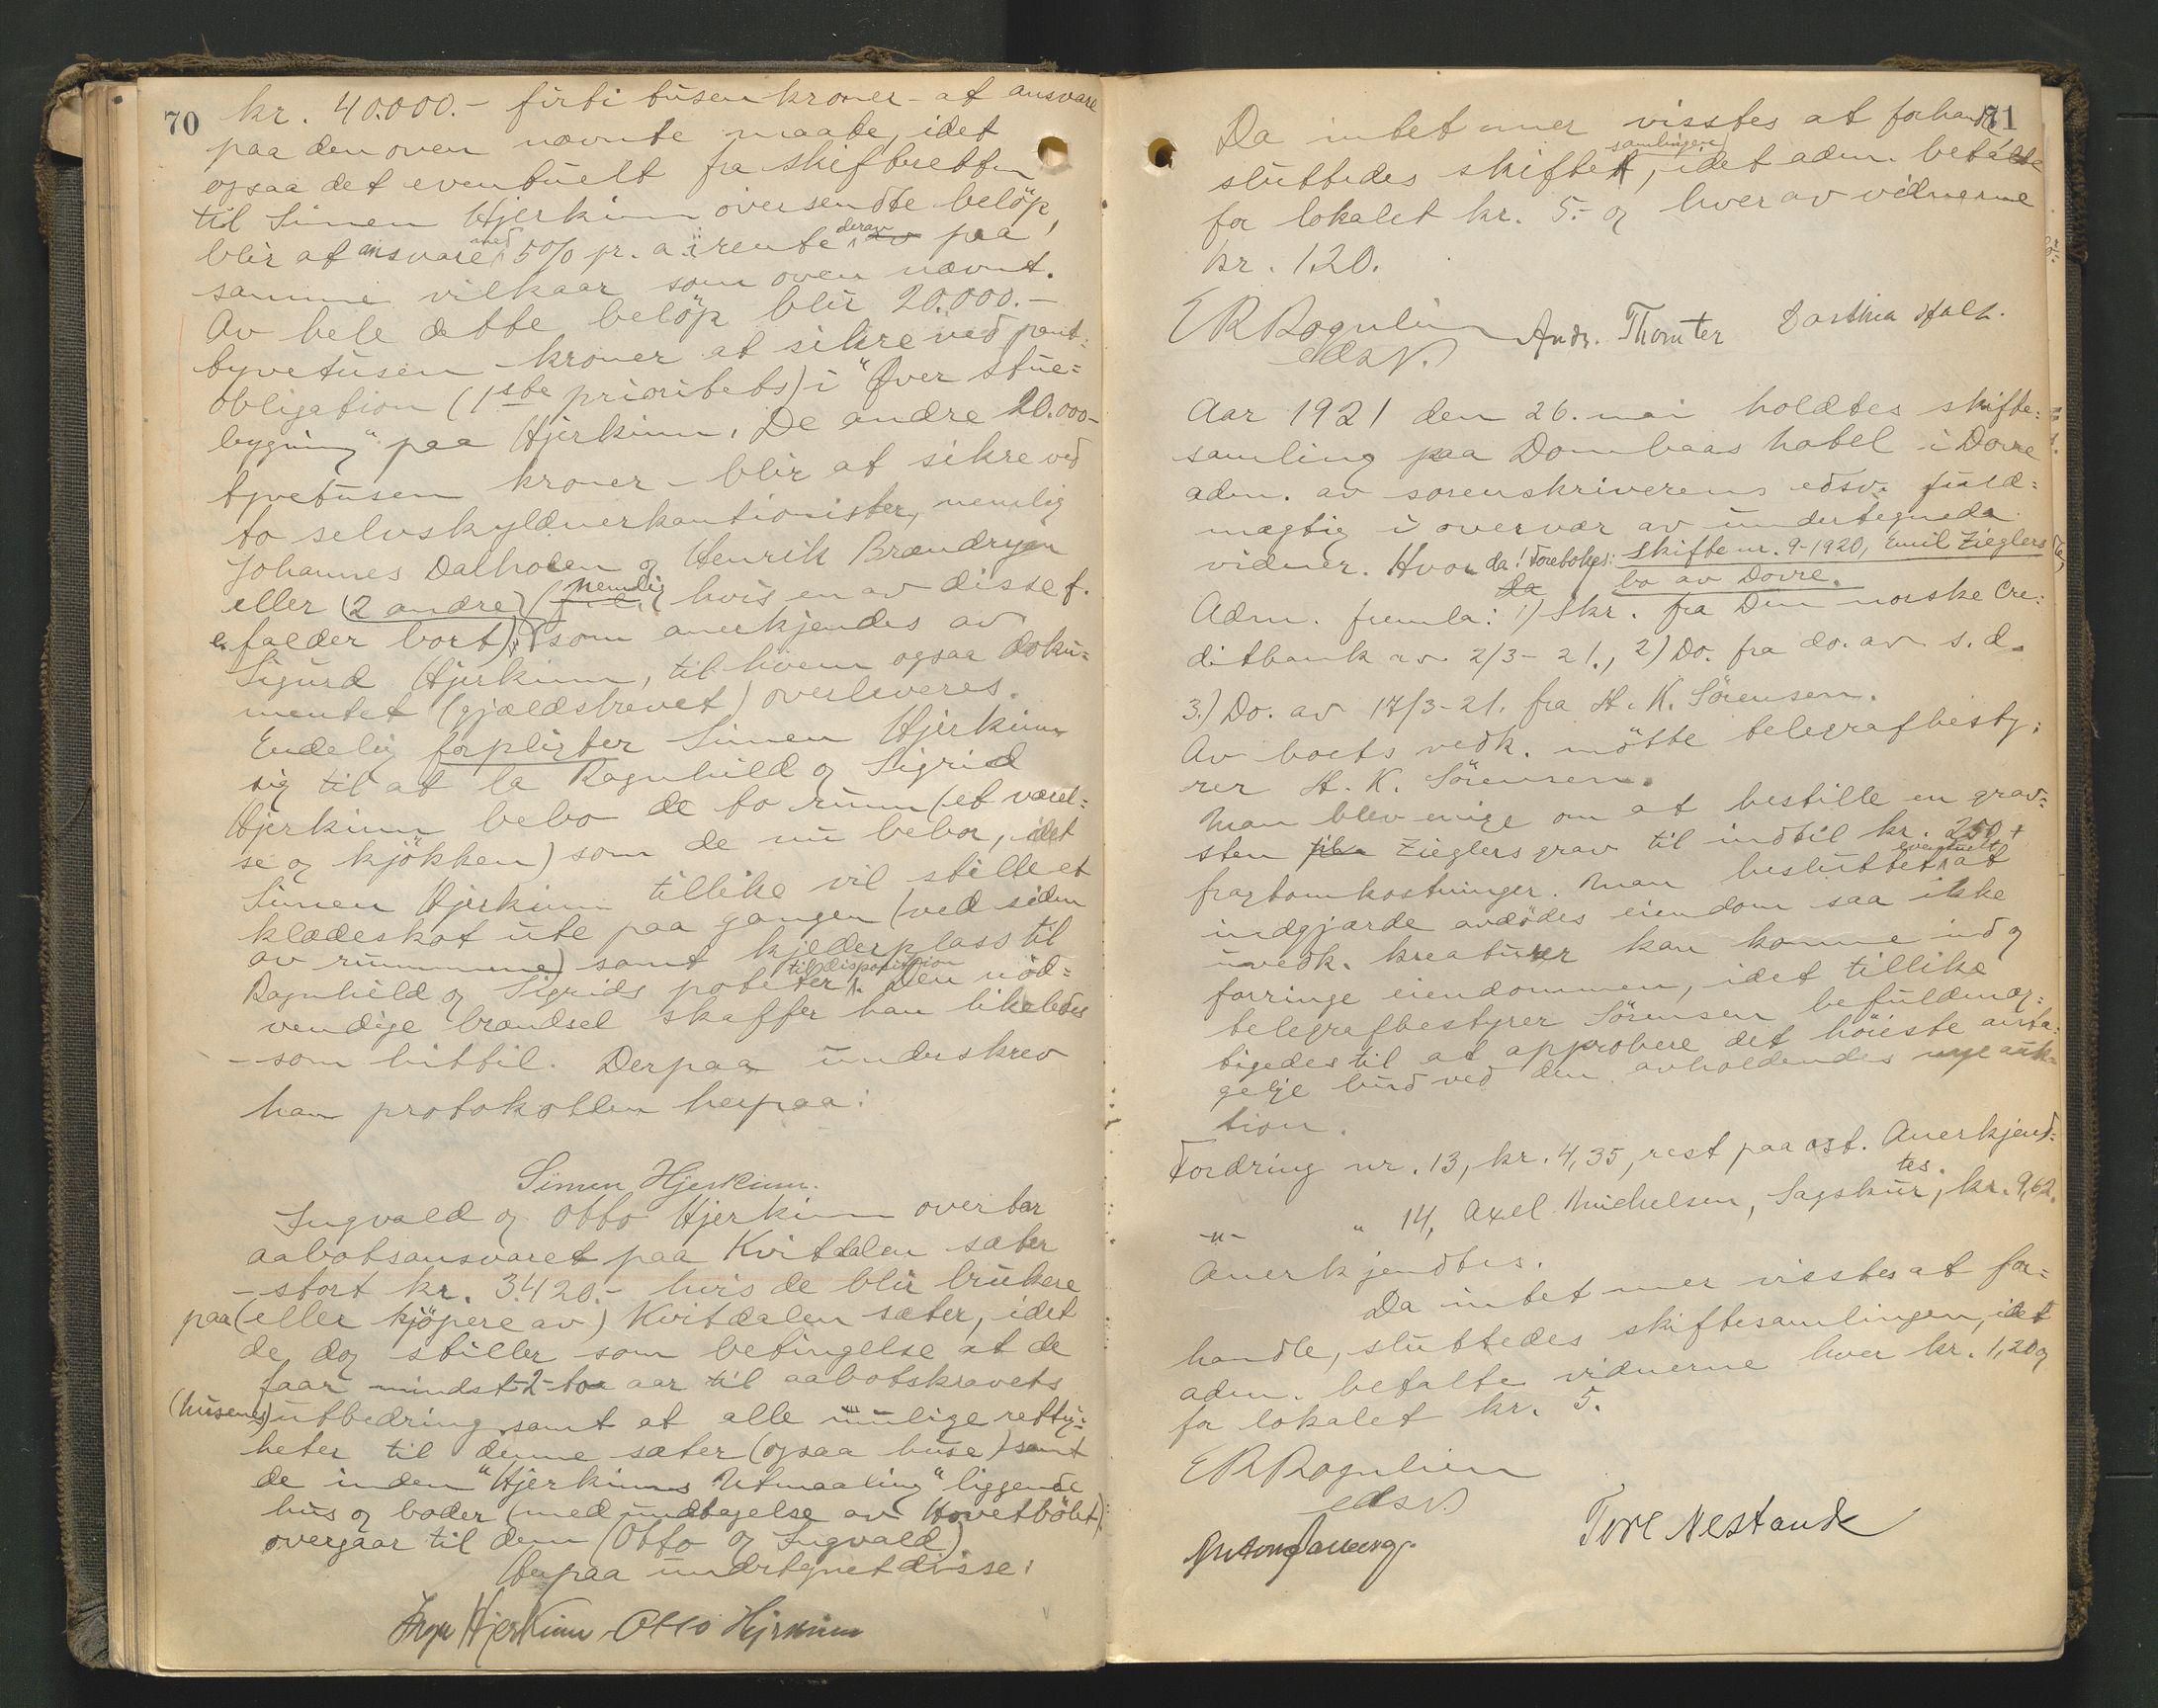 70
kr. 40.000.- firti tusen kroner - at ansvare
paa den oven nævnte maate, idet
ogsaa det eventuelt fra skifteretten
til Simen Hjerkinn oversendte beløp,
blir at ansvare med 5% pr. a. i rente derav paa
samme vilkaar som oven nævnt.
Av hele dette beløp blir 20.000.-
tyvetusen - kroner at sikre ved pant-
obligation (1ste prioritets) i "Øver Stue=
bygning" paa Hjerkinn. De andre 20.000-
tyvetusen kroner - blir at sikre ved
to selvskyldnerkautionister, nemlig
Johannes Dalholen og Henrik Brændryen
eller (2 andre) (nemlig hvis en av disse f.
e. falder bort), som anerkjendes av
Sigurd Hjerkinn, til hvem ogsaa doku=
mentet (gjældsbrevet) overleveres.
Endelig forpligter Simen Hjerkinn
sig til at la Ragnhild og Sigrid
Hjerkinn bebo de to rum (et værel=
se og kjøkken) som de nu bebor, idet
Simen Hjerkinn tillike vil stille et
klædeskat ute paa gangen (ved siden
av rummene) samt kjelderplass til
Ragnhild og Sigrids poteter til disposition. Den nød=
vendige brændsel skaffer han likeledes
- som hittil. Derpaa underskrev
han protokollen herpaa:
Simen Hjerkinn.
Ingvald og Otto Hjerkinn overtar
aabotsansvaret paa Kvitdalen sæter
- stort kr. 3420.- hvis de blir brukere
paa (eller kjøpere av) Kvitdalen sæter, idet
de dog stiller som betingelse at de
faar mindst -2- to aar til aabotskravets
(husenes) utbedring samt at alle mulige rettig=
heter til denne sæter (ogsaa huse) samt
de inden "Hjerkinns Utmaaling" liggende
hus og boder (med undtagelse av Hovetbölet)
overgaar til dem (Otto og Ingvald)
Herpaa undertegnet disse:
Ingv Hjerkinn - Otto Hjerkinn
71
Da intet mer visstes at forhandle
sluttedes skiftesamlingen, idet adm. betalte
for lokalet kr. 5.- og hver av vidnerne
kr. 1.20.
E R Rognlien Andr. Thomter
edsv.
Aar 1921 den 26. mai holdtes skifte=
samling paa Dombaas hotel i Dovre
adm. av sorenskriverens edsv. fuld=
mægtig i overvær av undertegnede
vidner. Hvor da! Foretokges: Skifte nr. 9-1920, Emil Zieglers
da bo av Dovre.
Adm. fremla: 1) Skr. fra Den norske Cre=
ditbank av 2/3-21., 2) Do. fra do. av s. d.
3.) Do. av 17/3-21. fra H. K. Sörensen.
Av boets vedk. mötte telegrafbesty=
rer H. K. Sörensen.
Man blev enige om at bestille en grav=
sten til Zieglers grav til indtil kr. 250 +
fragtomkostninger. Man besluttet eventuelt at
indgjærde avdödes eiendom saa ikke
uvedk. kreaturer kan komme ind og
forringe eiendommen, idet tillike
telegrafbestyrer Sörensen befuldmæg=
tigedes til at approbere det höieste anta=
gelige bud ved den avholdendes nye auk=
tion.
Fordring nr. 13, kr. 4,35, rest paa ost. Anerkjend=
tes.
-"- " 14, Axel Michelsen, Sagskur, kr. 9,62.
Anerkjendtes.
Da intet mer visstes at for=
handle, sluttedes skiftesamlingen, idet
adm. betalte vidnerne hver kr. 1,20 og
for lokalet kr. 5.
E R Rognlien
edsv.
Tore Nestande